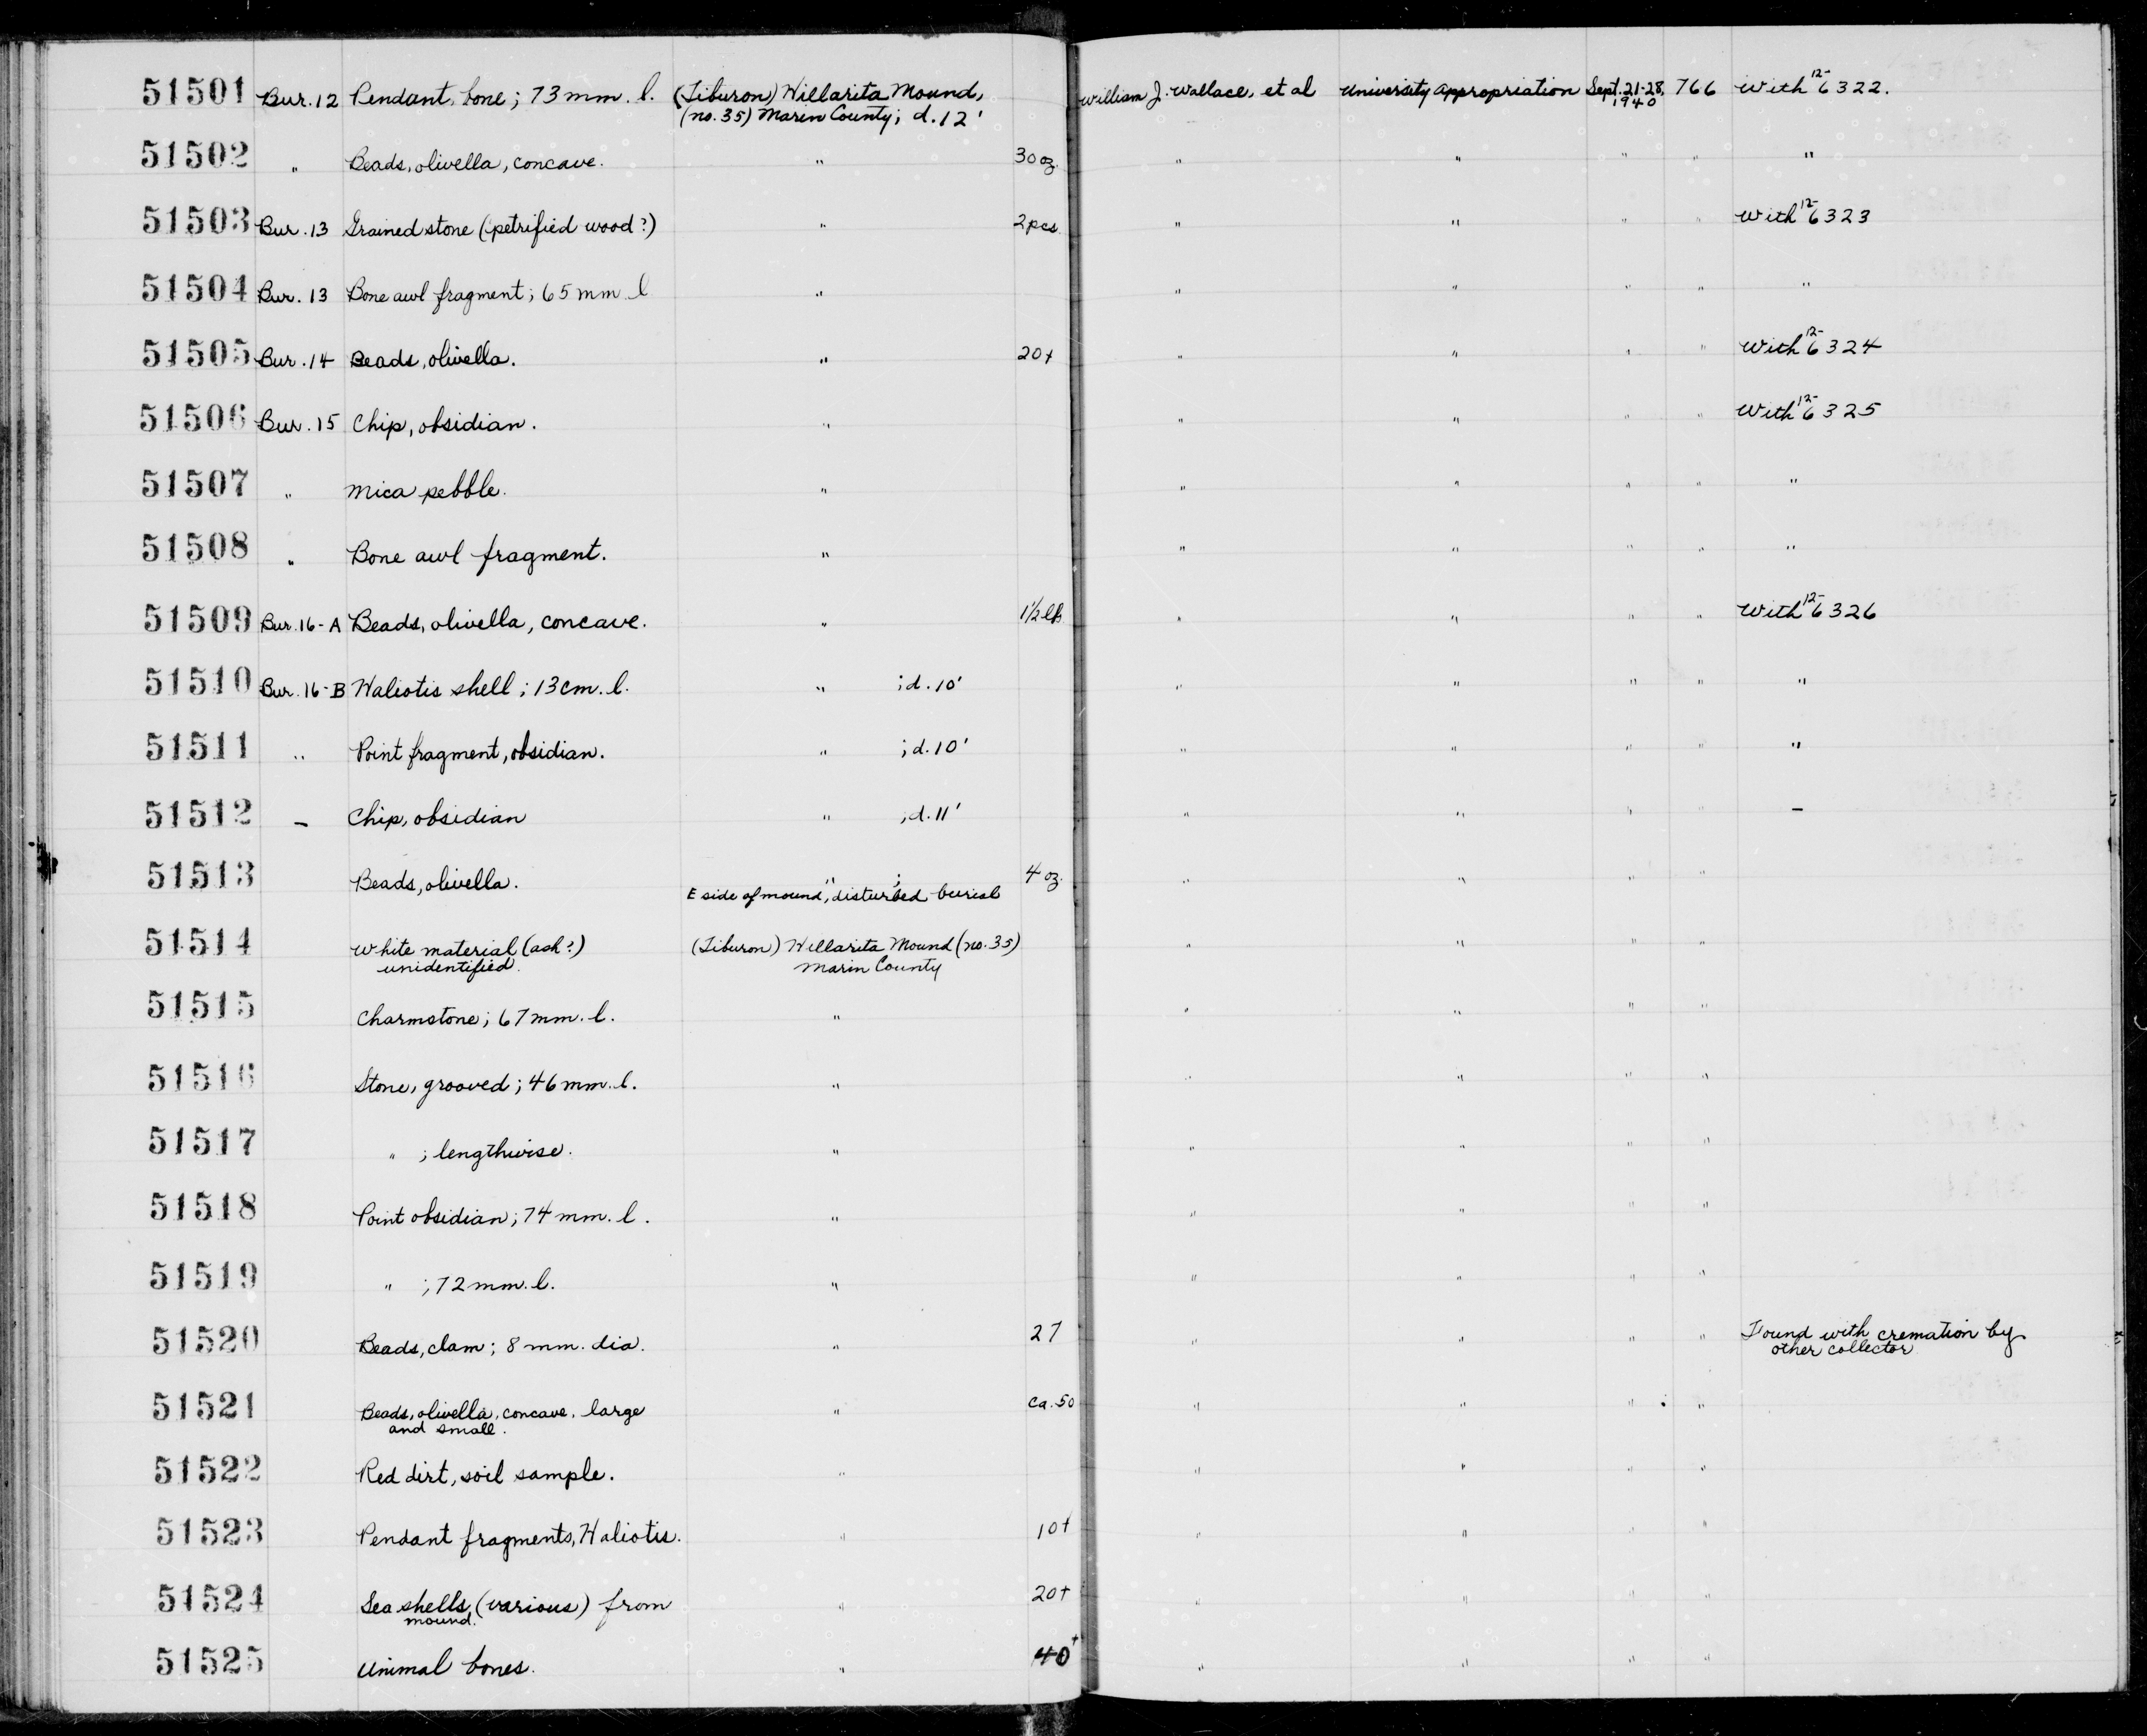 51501 Bur. 12 Pendant, bone; 73 mm. l. (Tiburon) Willarita Mound, William J. Wallace, et al University Appropriation Sept. 21-28, 766 With 12-6322.
(no. 35) Marin County; d. 12' 1940
51502 " Beads, olivella, concave. " 30 oz. " " " " "
51503 Bur. 13 Grained stone (petrified wood?) " 2 pcs " " " " With 12-6323
51504 Bur. 13 Bone awl fragment; 65 mm. l " " " " " "
51505 Bur. 14 Beads, olivella. " 20+ " " " " With 12-6324
51506 Bur. 15 Chip, obsidian. " " " " " With 12-6325
51507 " Mica pebble. " " " " " "
51508 " Bone awl fragment. " " " " " "
51509 Bur. 16-A Beads, olivella, concave. " 1½ lb " " " " With 12-6326
51510 Bur. 16-B Haliotis shell; 13 cm. l. " ; d. 10' " " " " "
51511 " Point fragment, obsidian. " ; d. 10' " " " " "
51512 – Chip, obsidian " ; d. 11' " " " " –
51513 Beads, olivella. " ; 4 oz. " " " "
E side of mound, disturbed burial
51514 White material (ash?) (Tiburon) Willarita Mound (no. 35) " " " "
unidentified. Marin County
51515 Charmstone; 67 mm. l. " " " " "
51516 Stone, grooved; 46 mm. l. " " " " "
51517 " ; lengthwise. " " " " "
51518 Point obsidian; 74 mm. l. " " " " "
51519 " ; 72 mm. l. " " " " "
51520 Beads, clam; 8 mm. dia. " 27 " " " " Found with cremation by
other collector
51521 Beads, olivella, concave, large " ca. 50 " " " "
and small.
51522 Red dirt, soil sample. " " " " "
51523 Pendant fragments, Haliotis. " 10+ " " " "
51524 Sea shells, (various) from " 20+ " " " "
mound.
51525 Animal bones. " 40+ " " " "